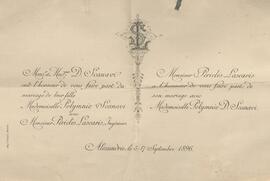 Mons. & Mad. D. Scanavi
ont l'honneur de vous faire part du
mariage de leur fille
Mademoiselle Polymnie Scanavi
avec
Monsieur Periclès Lascaris, Ingénieur
Monsieur Periclès Lascaris
a l'honneur de vous faire part de
son mariage avec
Mademoiselle Polymnie D. Scanavi
Alexandrie, le 5/17 Septembre 1896.